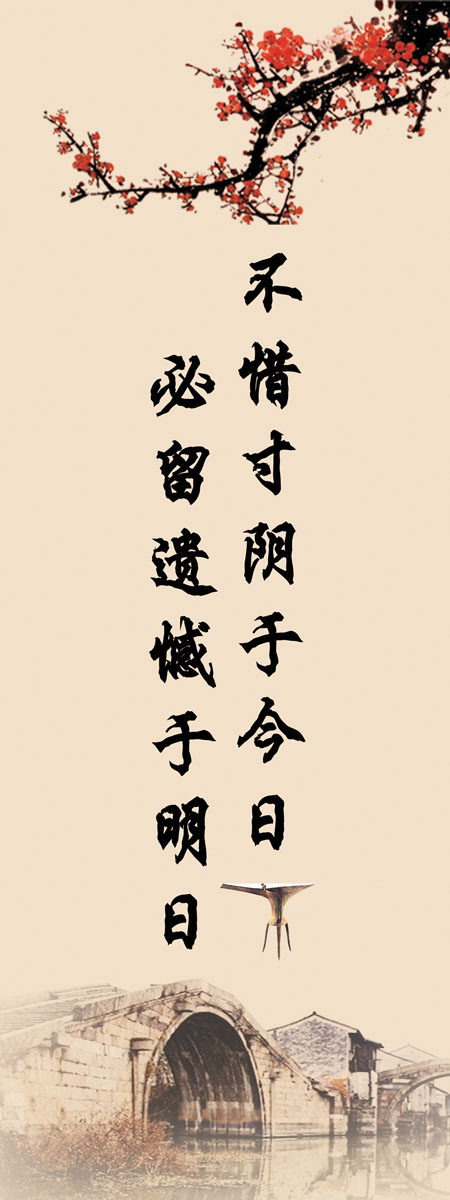 不惜寸阴于今日
必留遗憾于明日